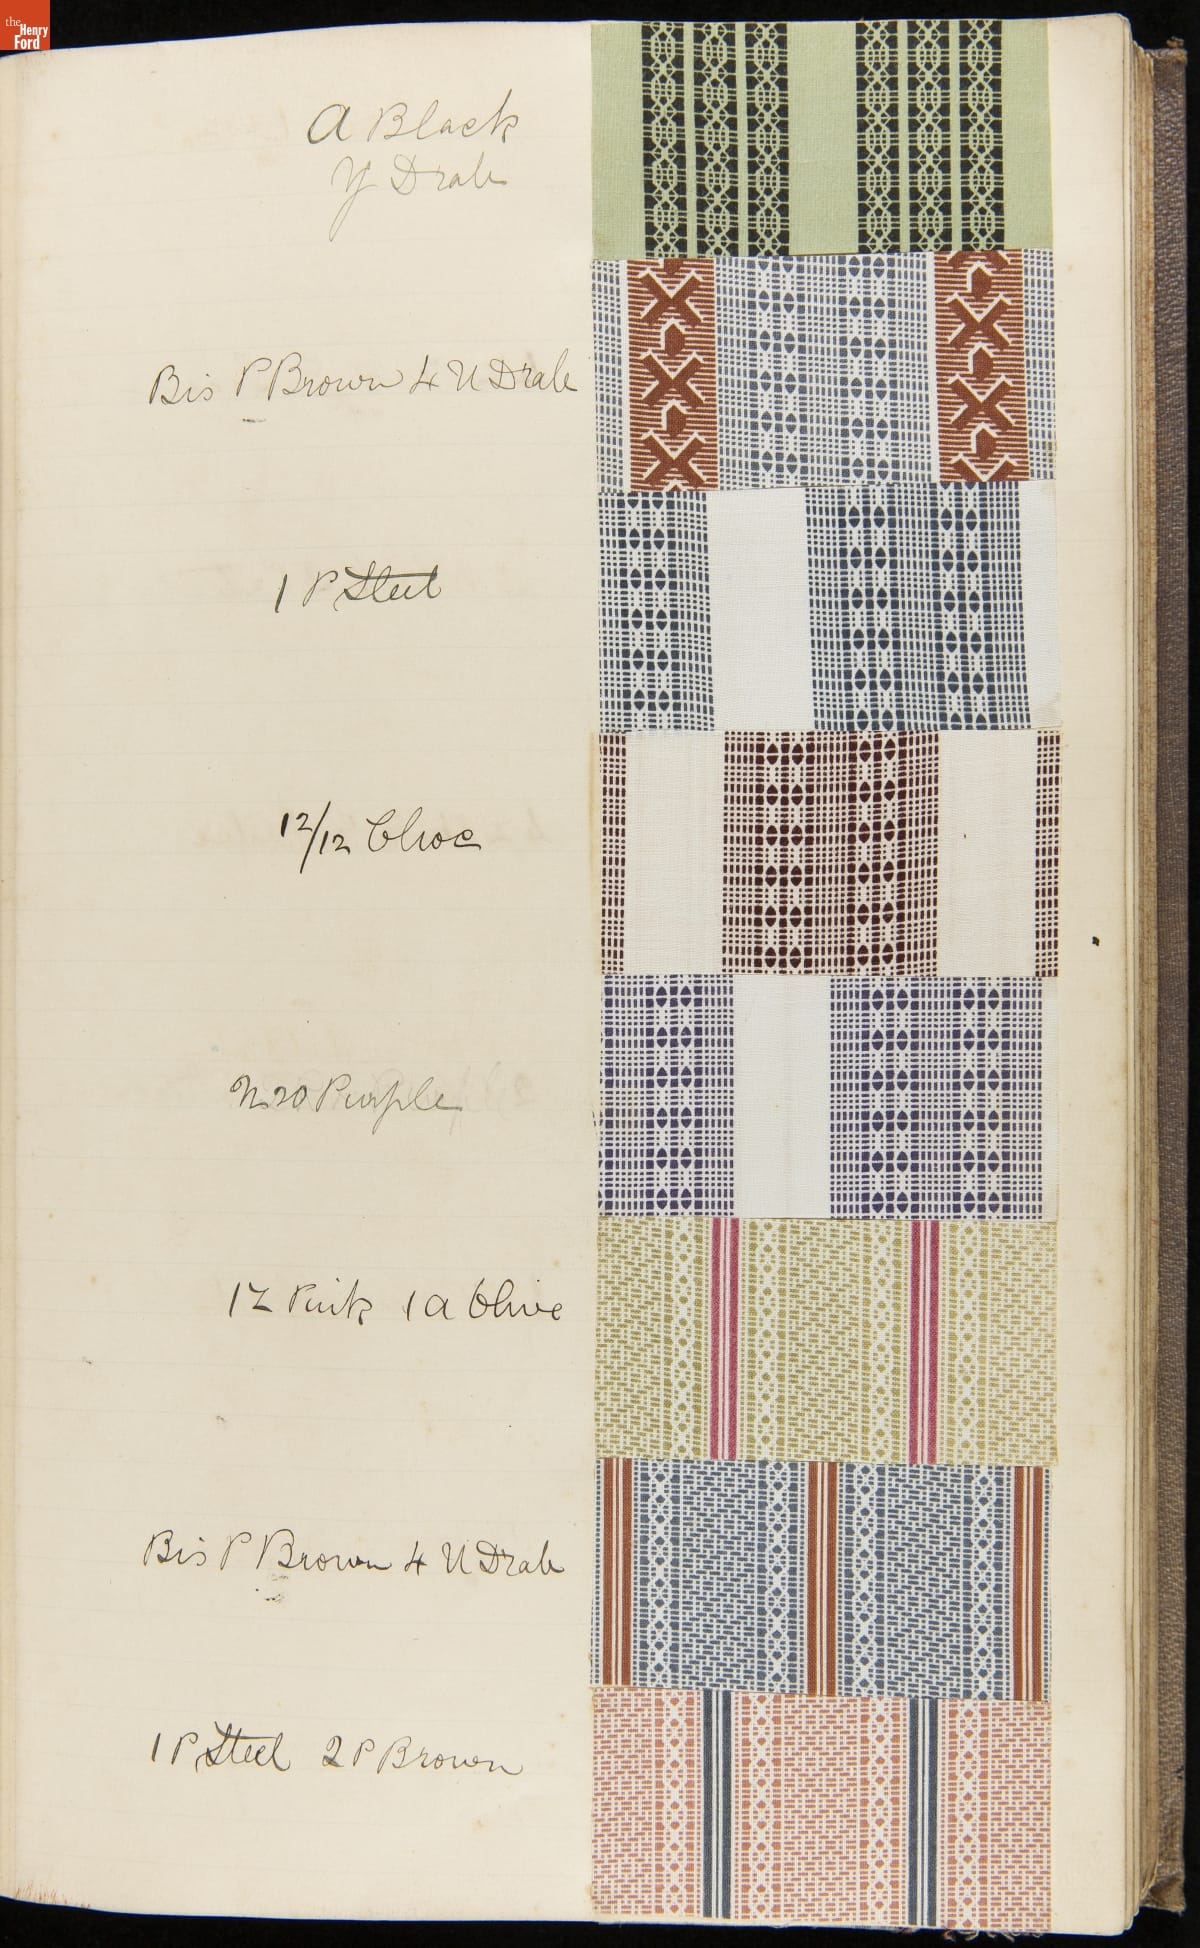 the Henry Ford
A Black
Y Drab
Bis P Brown 4 U Drab
1 P Steel
12/12 Choc
N 20 Purple
1Z Pink 1 A Olive
Bis P Brown 4 U Drab
1 P Steel 2 P Brown